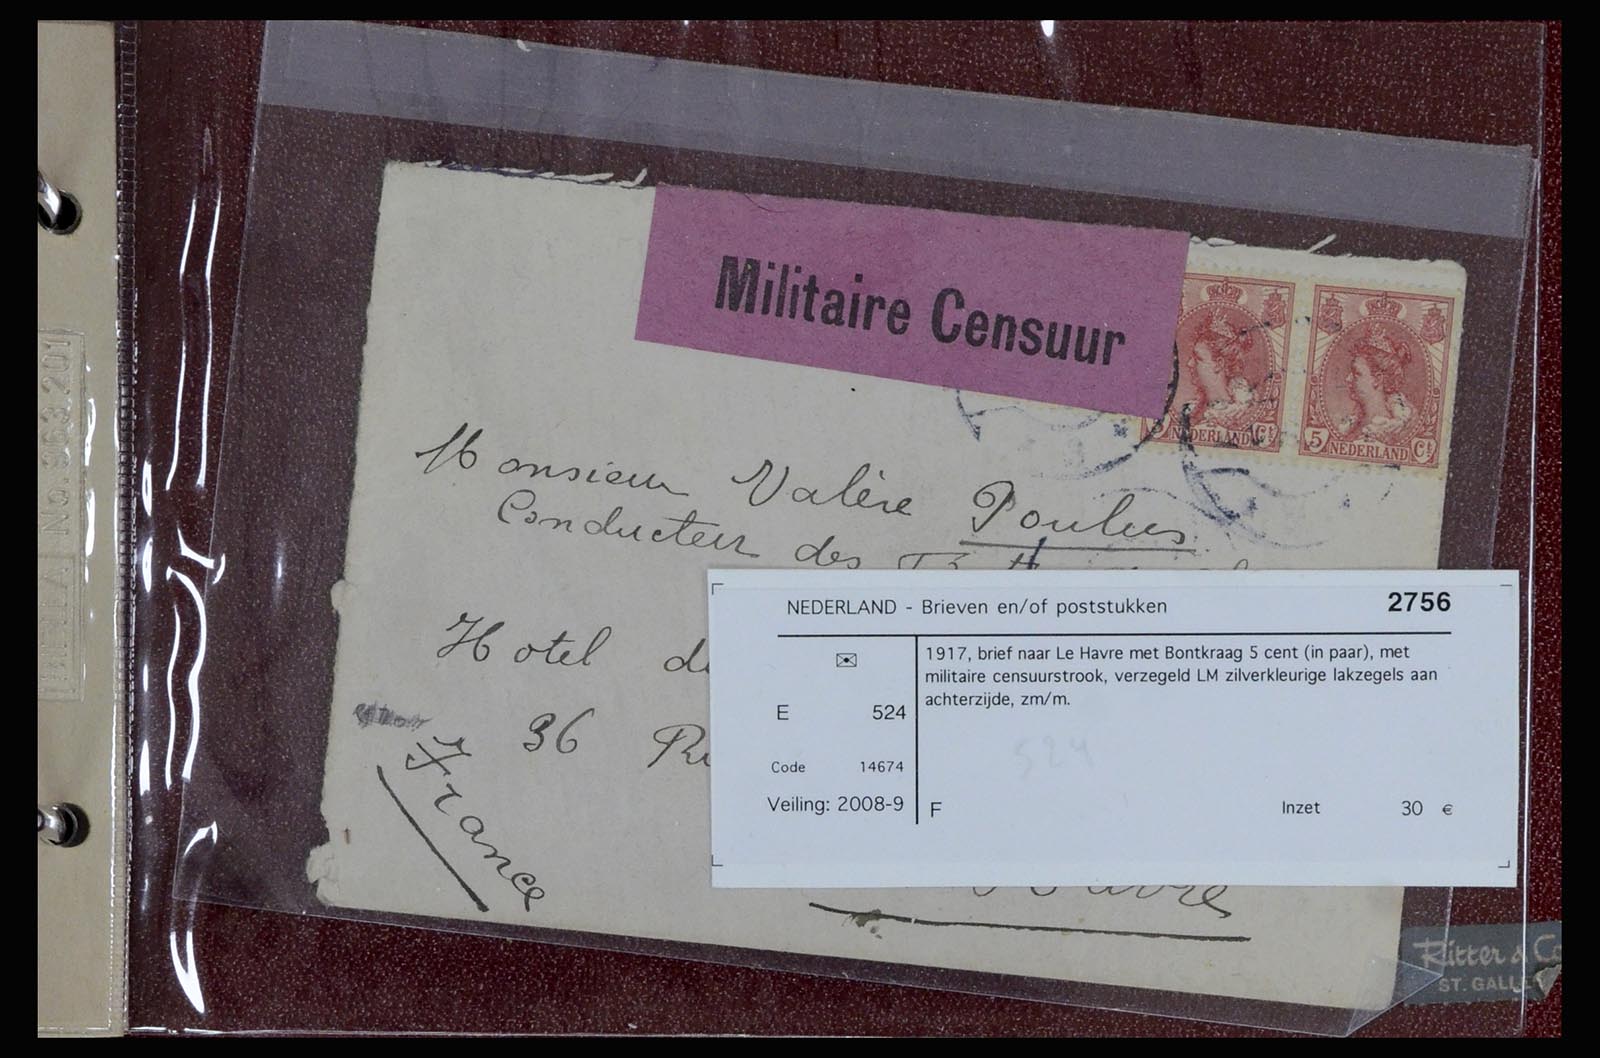 Militaire Censuur
5 NEDERLAND Ct
NEDERLAND Ct
Monsieur Valère
Conducteur des
Hotel
36
France
Havre
NEDERLAND - Brieven en/of poststukken 2756
1917, brief naar Le Havre met Bontkraag 5 cent (in paar), met
militaire censuurstrook, verzegeld LM zilverkleurige lakzegels aan
achterzijde, zm/m.
E 524
Code 14674
Veiling: 2008-9
F Inzet 30 €
524
No. 963.201
Ritter & Co
ST. GALLEN